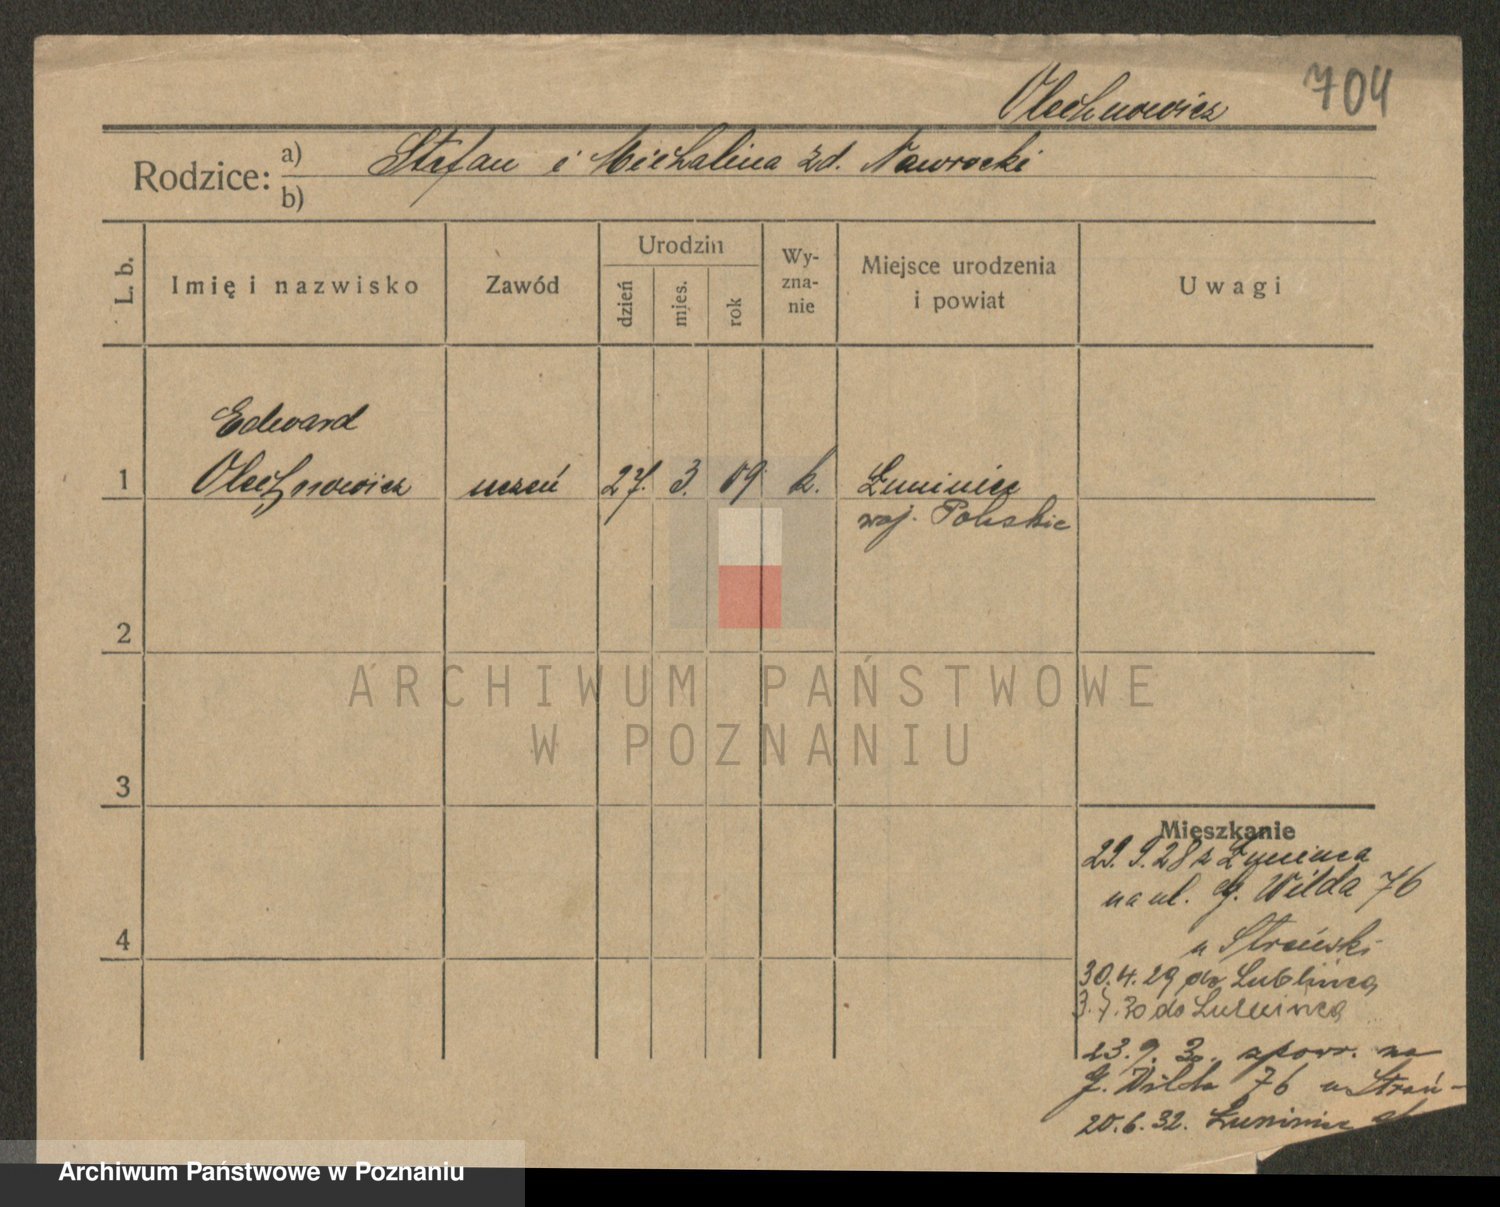 Olechnowicz 704
Rodzice: a) Stefan i Michalina zd. Nawrocki
b)
L. b.
Imię i nazwisko
Zawód
Urodzin
dzień
mies.
rok
Wy-
zna-
nie
Miejsce urodzenia
i powiat
Uwagi
Edward
1 Olechnowicz uczeń 27. 3. 09 k. Łuniniec
woj. Poleskie
2
3
4
Mieszkanie
29. 9. 28 z Łuninca
na ul. G. Wilda 76
u Strański
30. 4. 29 do Lublinca
3. 7. 30 do Łuninca
23. 9. 30. zpowr. na
G. Wilda 76 u Strań-
20. 6. 32. Łuniniec
ARCHIWUM PAŃSTWOWE
W POZNANIU
Archiwum Państwowe w Poznaniu